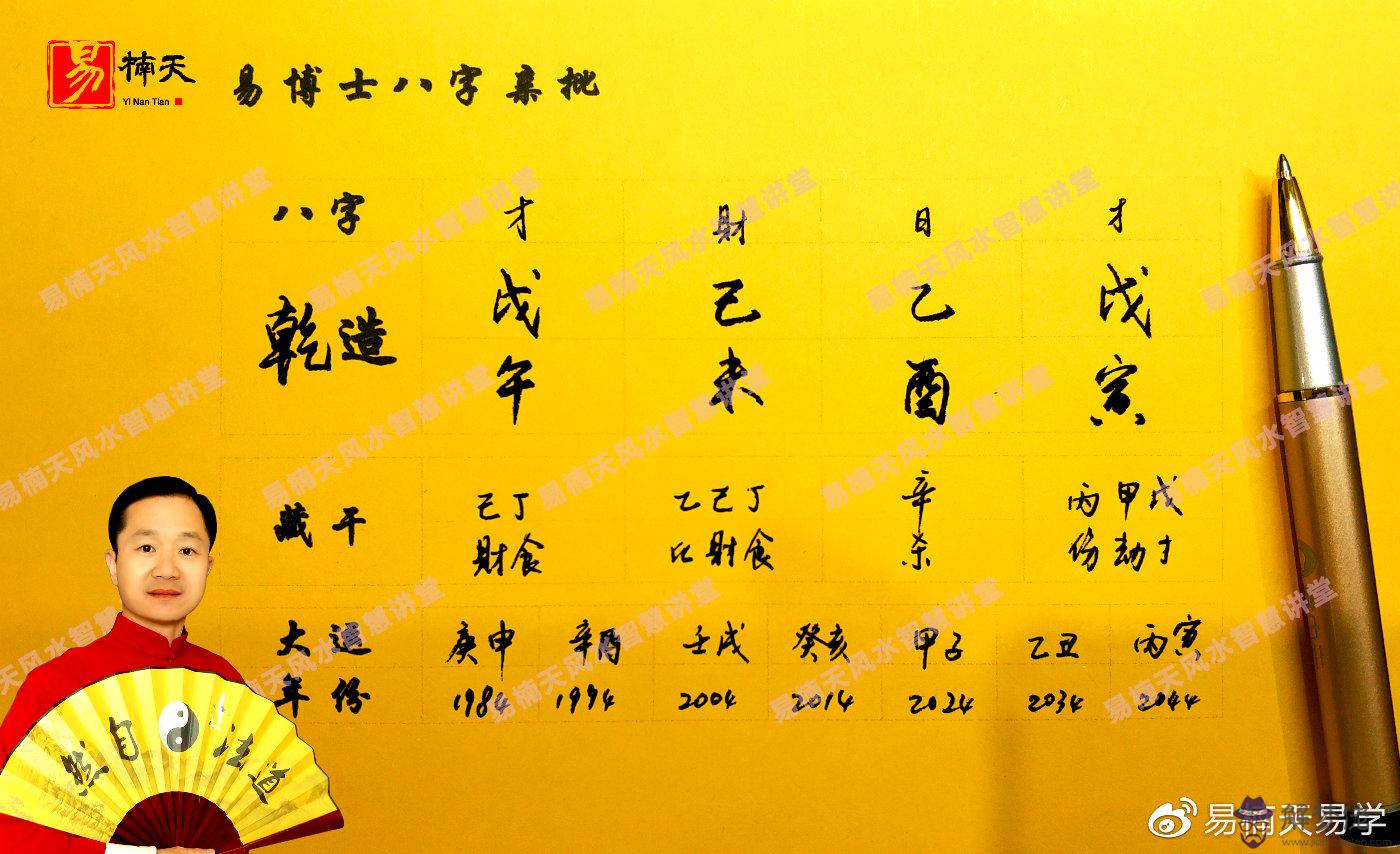 易楠天
Yi Nan Tian
易博士八字亲批
八字 才 財 日 才
乾造 戊 己 乙 戊
午 未 酉 寅
藏干 己丁 乙己丁 辛 丙甲戊
財食 比財食 杀 伤劫才
大运 庚申 辛酉 壬戌 癸亥 甲子 乙丑 丙寅
年份 1984 1994 2004 2014 2024 2034 2044
道法自然
易楠天风水智慧讲堂
易楠天易学